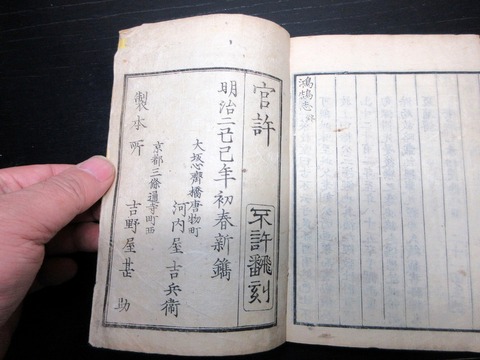 鴻鵠志
官許
不許飜刻
明治二己巳年初春新鐫
大坂心齋橋唐物町
河内屋吉兵衞
京都三條通寺町西
吉野屋甚助
製本所